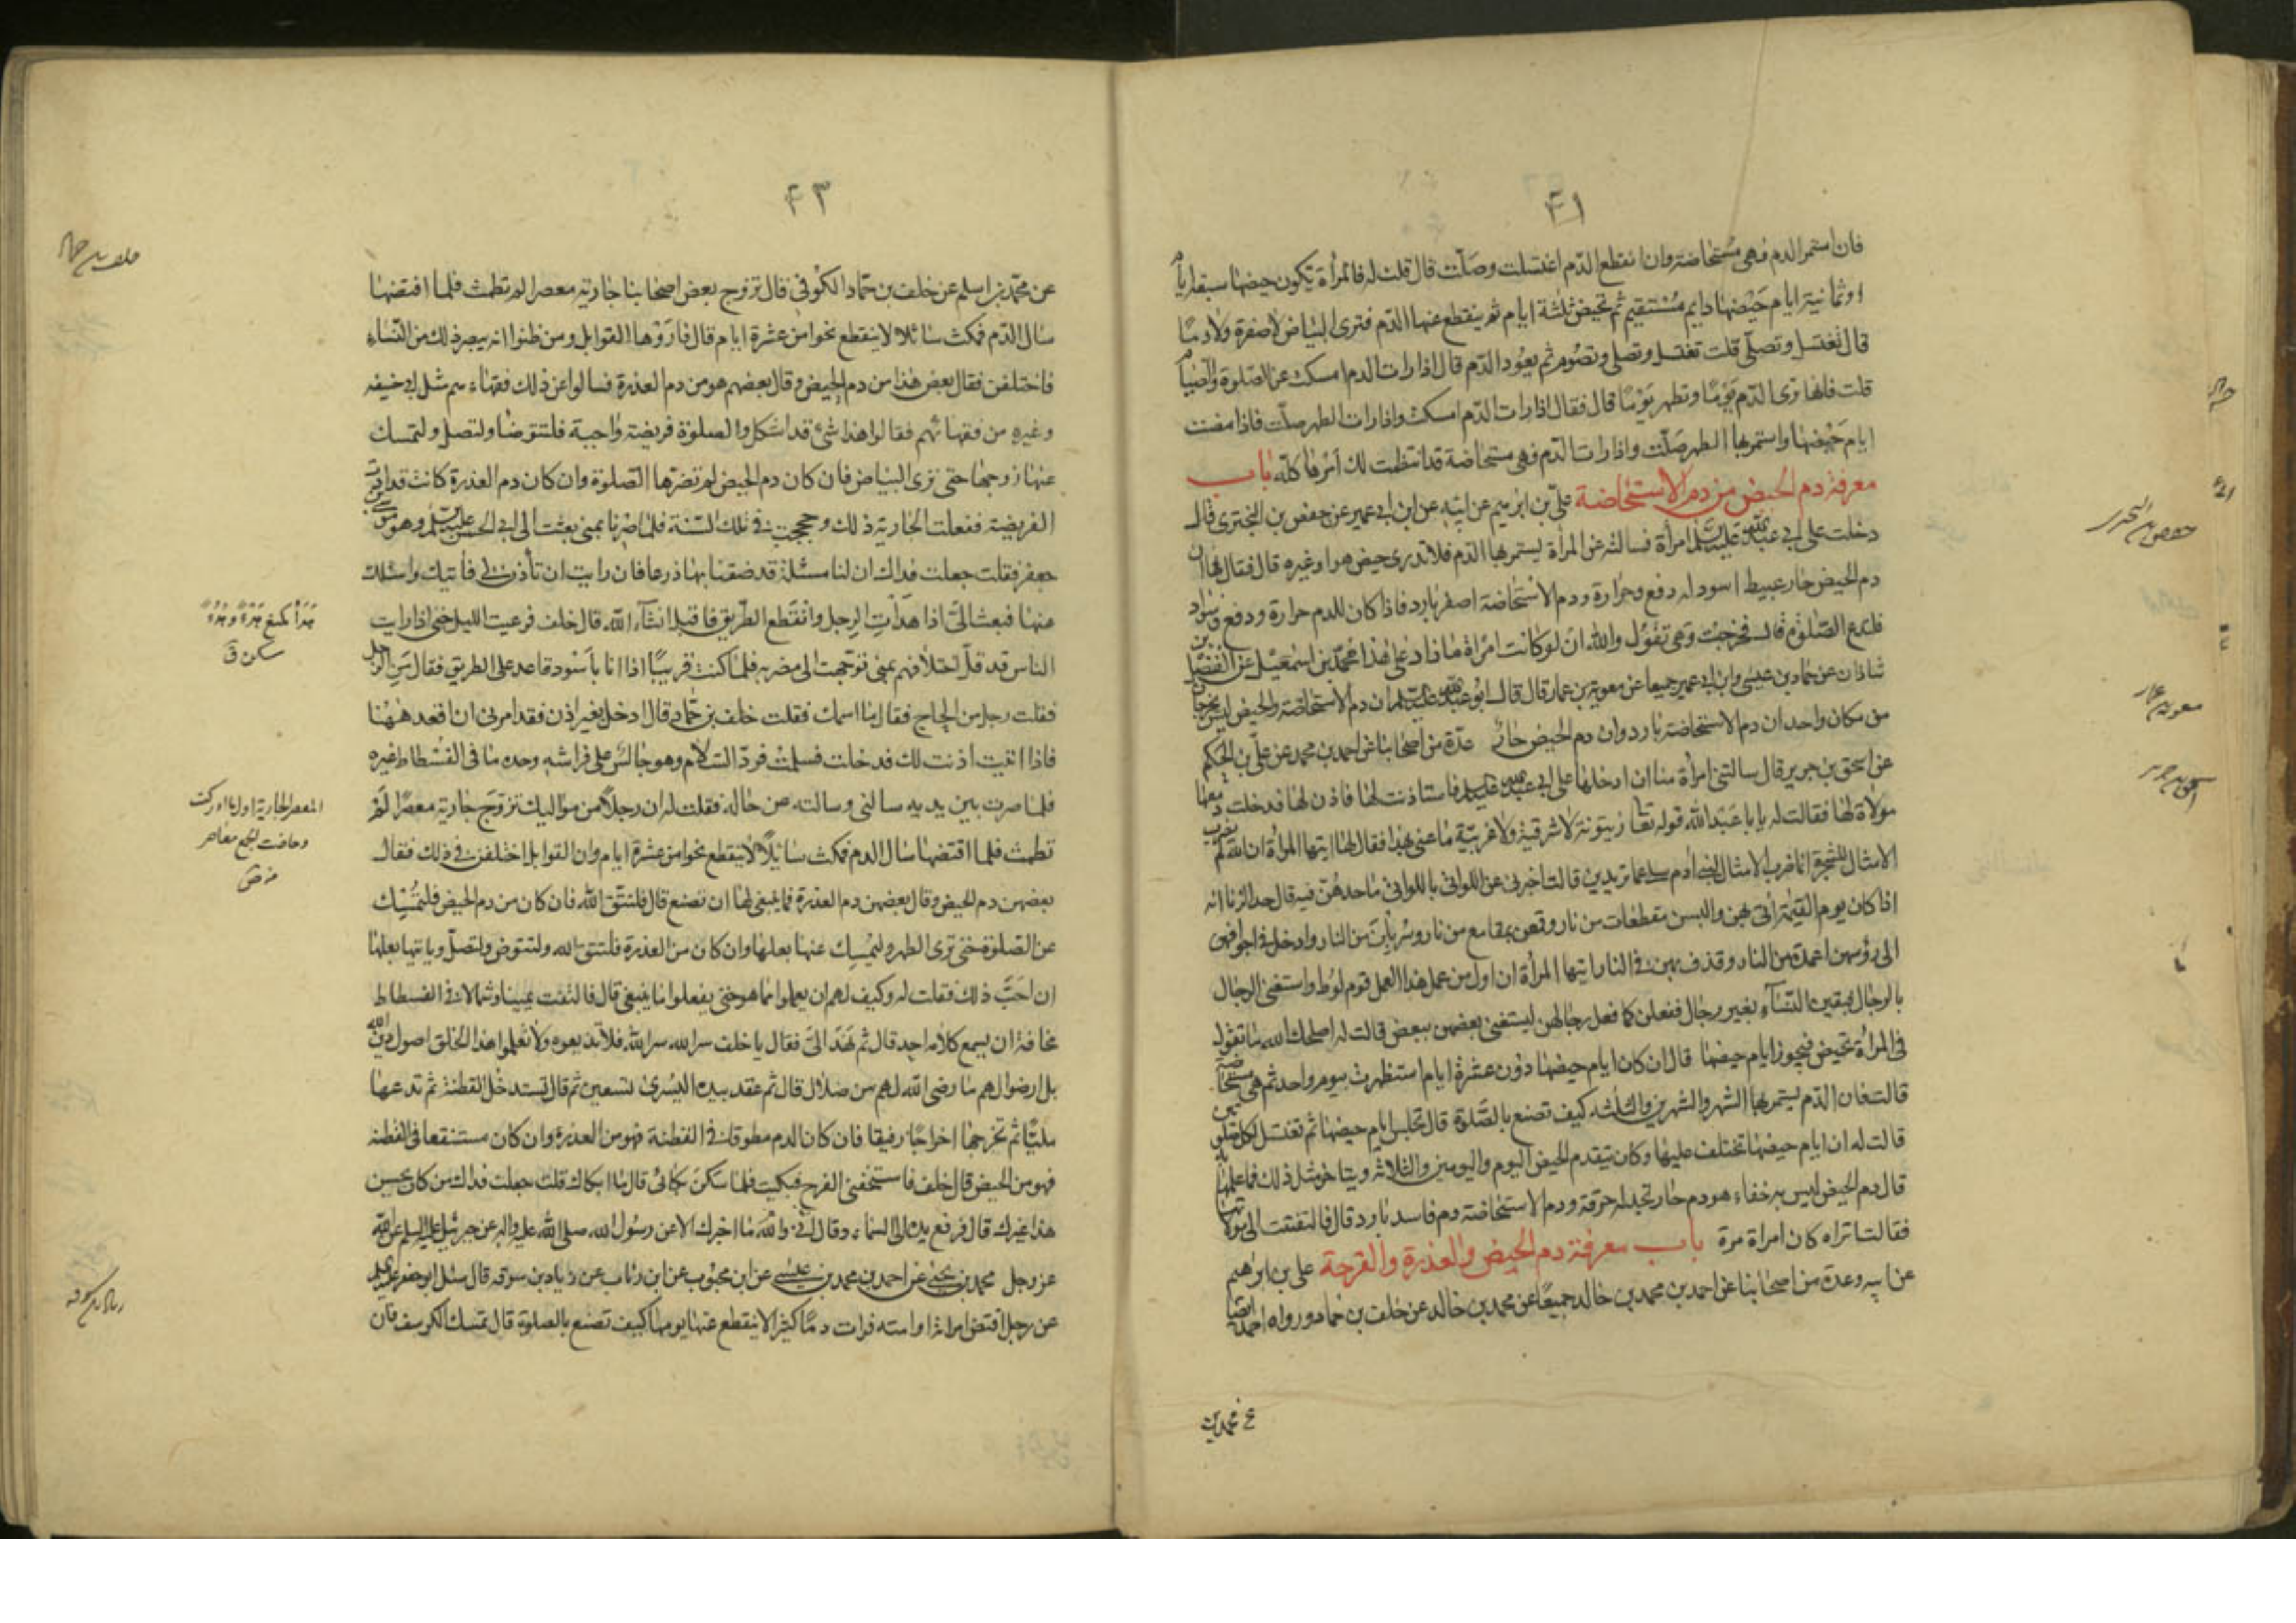 ٤١
فان استمر الدم فهى مستحاضة وان انقطع الدّم اغتسلت وصلّت قال قلت له فالمرأة يكون حيضها سبعة ايام
او ثمانية ايام حَيْضها دايم مُسْتقيم ثم تحيض ثلثة ايام ثم ينقطع عنها الدّم فترى البياض لا صفرة ولا دمًا
قال تغتسل وتصلّى قلت تغتسل وتصلى وتصُوم ثم يعوُد الدّم قال اذا رات الدم امسكت عن الصّلوة والصّيام
قلت فانها ترى الدّم يَوْمًا وتطهر يَوْمًا قال فقال اذا رات الدّم امسكت واذا رات الطهر صلّت فاذا مضت
ايام حَيْضها واستمر بها الطهر صَلّت واذا رات الدّم فهى مستحاضة قد انتظمت لك أمرها كلّه باب
معرفة دم الحيض من دم الاستحاضة علىّ بن ابرهيم عن ابيه عن ابن ابى عمير عن حفص بن البخترى قال
دخلت على ابى عبد الله عليه السلم امرأة فسالته عن المرأة يستمر بها الدّم فلا تدرى حيض هو او غيره قال فقال لها ان
دم الحيض حار عبيط اسود له دفع وحرارة ودم الاستحاضة اصفر بارد فاذا كان للدم حرارة ودفع وسواد
فلتدع الصّلوة قال فخرجت وهى تقوُل والله ان لو كانت امْراة ما زاد على هذا محمّد بن اسمعيل عن الفضل بن
شاذان عن حماد بن عيسى وابن ابى عمير جميعا عن معوية بن عمار قال قال ابوُ عبد الله عليه السلم ان دم الاستحاضة والحيض ليس يخرجان
من مكان واحد ان دم الاستحاضة بارد وان دم الحيض حار عدّة من اصحابنا عن احمد بن محمد عن علىّ بن الحكم
عن اسحق بن جرير قال سالتنى امرأة منا ان ادخلها على ابى عبد الله عليه السلم فاستاذنت لها فاذن لها فدخلت ومعها
مولاة لها فقالت له يا با عَبد الله قوله تعا زيتونة لا شرقية ولا غربيّة ما عنى بهذا فقال لها ايتها المرأة ان الله لم يضرب
الامثال للشجرة انما ضرب الامثال لبنى ادم سلى عما تريدين قالت اخبرنى عن اللواتى باللواتى ما حدهنّ فيه قال حد الزنا انه
اذا كان يوم القيمة اُتى بهن والبسن مقطعات من نار وقمعن بمقامع من نار وسُربِلْن من النار وادخل فى اجوافهن
الى رؤسهن اعمدة من النار وقذف بهن فى النار ايتها المرأة ان اول من عمل هذا العمل قوم لوُط واستغنى الرجال
بالرجال فبقين النّسآء بغير رجال ففعلن كما فعل رجالهن ليستغنى بعضهن ببعض قالت له اصلحك الله ما تقول
فى المرأة تحيض فيجوز ايام حيضها قال ان كان ايام حيضها دوُن عشرة ايام استظهرت بيوم واحد ثم هى مستحاضة
قالت فان الدّم يستمر بها الشهر والشهرين والثلثه كيف تصنع بالصّلوة قال تجلس ايام حيضها ثم تغتسل لكل صلوتين
قالت له ان ايام حيضها تختلف عليها وكان يتقدم الحيض اليوم واليومين والثلاثه ويتاخر مثل ذلك فما علمها به
قال دم الحيض ليس به خفاء هو دم حار تجد له حرقة ودم الاستحاضة دم فاسد بارد قال فالتفتت الى مولاتها
فقالت اتراه كان امراة مرة باب معرفة دم الحيض والعذرة والقرحة على بن ابراهيم
عن ابيه وعدة من اصحابنا عن احمد بن محمد بن خالد جميعًا عن محمد بن خالد عن خلف بن حماد ورواه احمد ايضا
حفص بن البخترى
معوية بن عمار
اسحق بن جرير
٤٣
عن محمّد بن اسلم عن خلف بن حمّاد الكوُفى قال تزوج بعض اصحابنا جارية معصرا لم تطمث فلما افتضها
سال الدّم فمكث سائلا لا ينقطع نحوا من عشرة ايام قال فارَوْها القوابل ومن ظنوا انه يبصر ذلك من النّساء
فاختلفن فقال بعض هذا من دم الحيض وقال بعضهم هو من دم العذرة فسالوا عن ذلك فقهاءهم مثل ابى حنيفه
وغيرهِ من فقهائهم فقالوا هذا شئ قد اشكل والصلوة فريضة واجبة فلتتوضأ ولتصل وليمسك
عنها زوجها حتى ترى البياض فان كان دم الحيض لم تضرها الصّلوة وان كان دم العذرة كانت قد ادّت
الفريضة ففعلت الجارية ذلك وحججت فى تلك السّنة فلما صِرنا بمنى بعثت الى ابى الحسن عليه السلم وهو موسى بن
جعفر فقلت جعلت فداك ان لنا مسئلة قد ضقنا بها ذرعا فان رايت ان تأذن لى فأتيك واسئلك
عنها فبعث الىّ اذا هَدَأتِ الرِجل وانقَطع الطّريق فاقبل انشآء الله قال خلف فرعيت الليل حتى اذا رايت
الناس قد قلّ اختلافهم بمنى توجهت الى مضربه فلما كنت قريبًا اذا انا بأسْود قاعد على الطريق فقال مَنِ الرّجل
فقلت رجل من الحاج فقال ما اسمك فقلت خلف بن حمّاد قال ادخل بغير اذن فقد امرنى ان اقعد ههُنا
فاذا اتيت اذنت لك فدخلت فسلمت فردّ السّلام وهو جالسٌ على فراشهِ وحده ما فى الفُسْطاط غيره
فلما صرت بين يديه سالنى وسالته عن حاله فقلت له ان رجلًا من مواليك تزوّج جارية معصرًا لَمْ
تطمث فلما اقتضها سال الدم فمكث سائلًا لا ينقطع نحوا من عشرة ايام وان القوابل اختلفن فى ذلك فقال
بعضهن دم الحيض وقال بعضهن دم العذرة فما ينبغى لها ان تصنع قال فلتتّق الله فان كان من دم الحيض فلتُمْسِك
عن الصّلوة حتى ترى الطهر وليُمْسِك عنها بعلها وان كان من العذرة فلتتق الله ولتتوض ولتصلّ وياتيها بعلها
ان احَبّ ذلك فقلت له وكيف لهم ان يعلموا ما هو حتى يفعلوا ما ينبغى قال فالتفت يمينا وشمالا فى الفسطاط
مخافة ان يسمع كلامه احد قال ثم نَهَدَ الىّ فقال يا خلف سر الله سر الله فلا تذيعوه ولا تعلموا هذا الخلق اصول دين الله
بل ارضوا لهم ما رضى الله لهم من ضلال قال ثم عقد بيده اليُسرى تسعين ثم قال تستدخل القطنة ثم تدعها
مليّا ثم تخرجها اخراجًا رفيقا فان كان الدم مطوقا فى القطنة فهو من العذرة وان كان مستنقعا فى القطنه
فهو من الحيض قال خلف فاستحفّنى الفرح فبكيت فلما سَكَنَ بكائى قال ما ابكاك قلت جعلت فداك من كان يحسن
هذا غيرك قال فرفع يده الى السّماء وقال انّى والله ما اخبرك الا عن رسوُل الله صلى الله عليه واله عن جبرئيل عليه السلم عن الله
عز وجل محمد بن يحيى عن احمد بن محمد بن عيسى عن ابن محبوُب عن ابن رئاب عن زياد بن سوقه قال سئل ابو جعفر عليه السلم
عن رجل اقتض امراته او امته فرات دمًا كثيرا لا ينقطع عنها يومها كيف تصنع بالصلوة قال تمسك الكرسف فان
خلف بن حماد
هَدَأ كمنع هَدْءًا وهُدُوءًا
سكن ق
المعصر الجارية اول ما ادركت
وحاضت الجمع معاصر
زياد بن سوقه